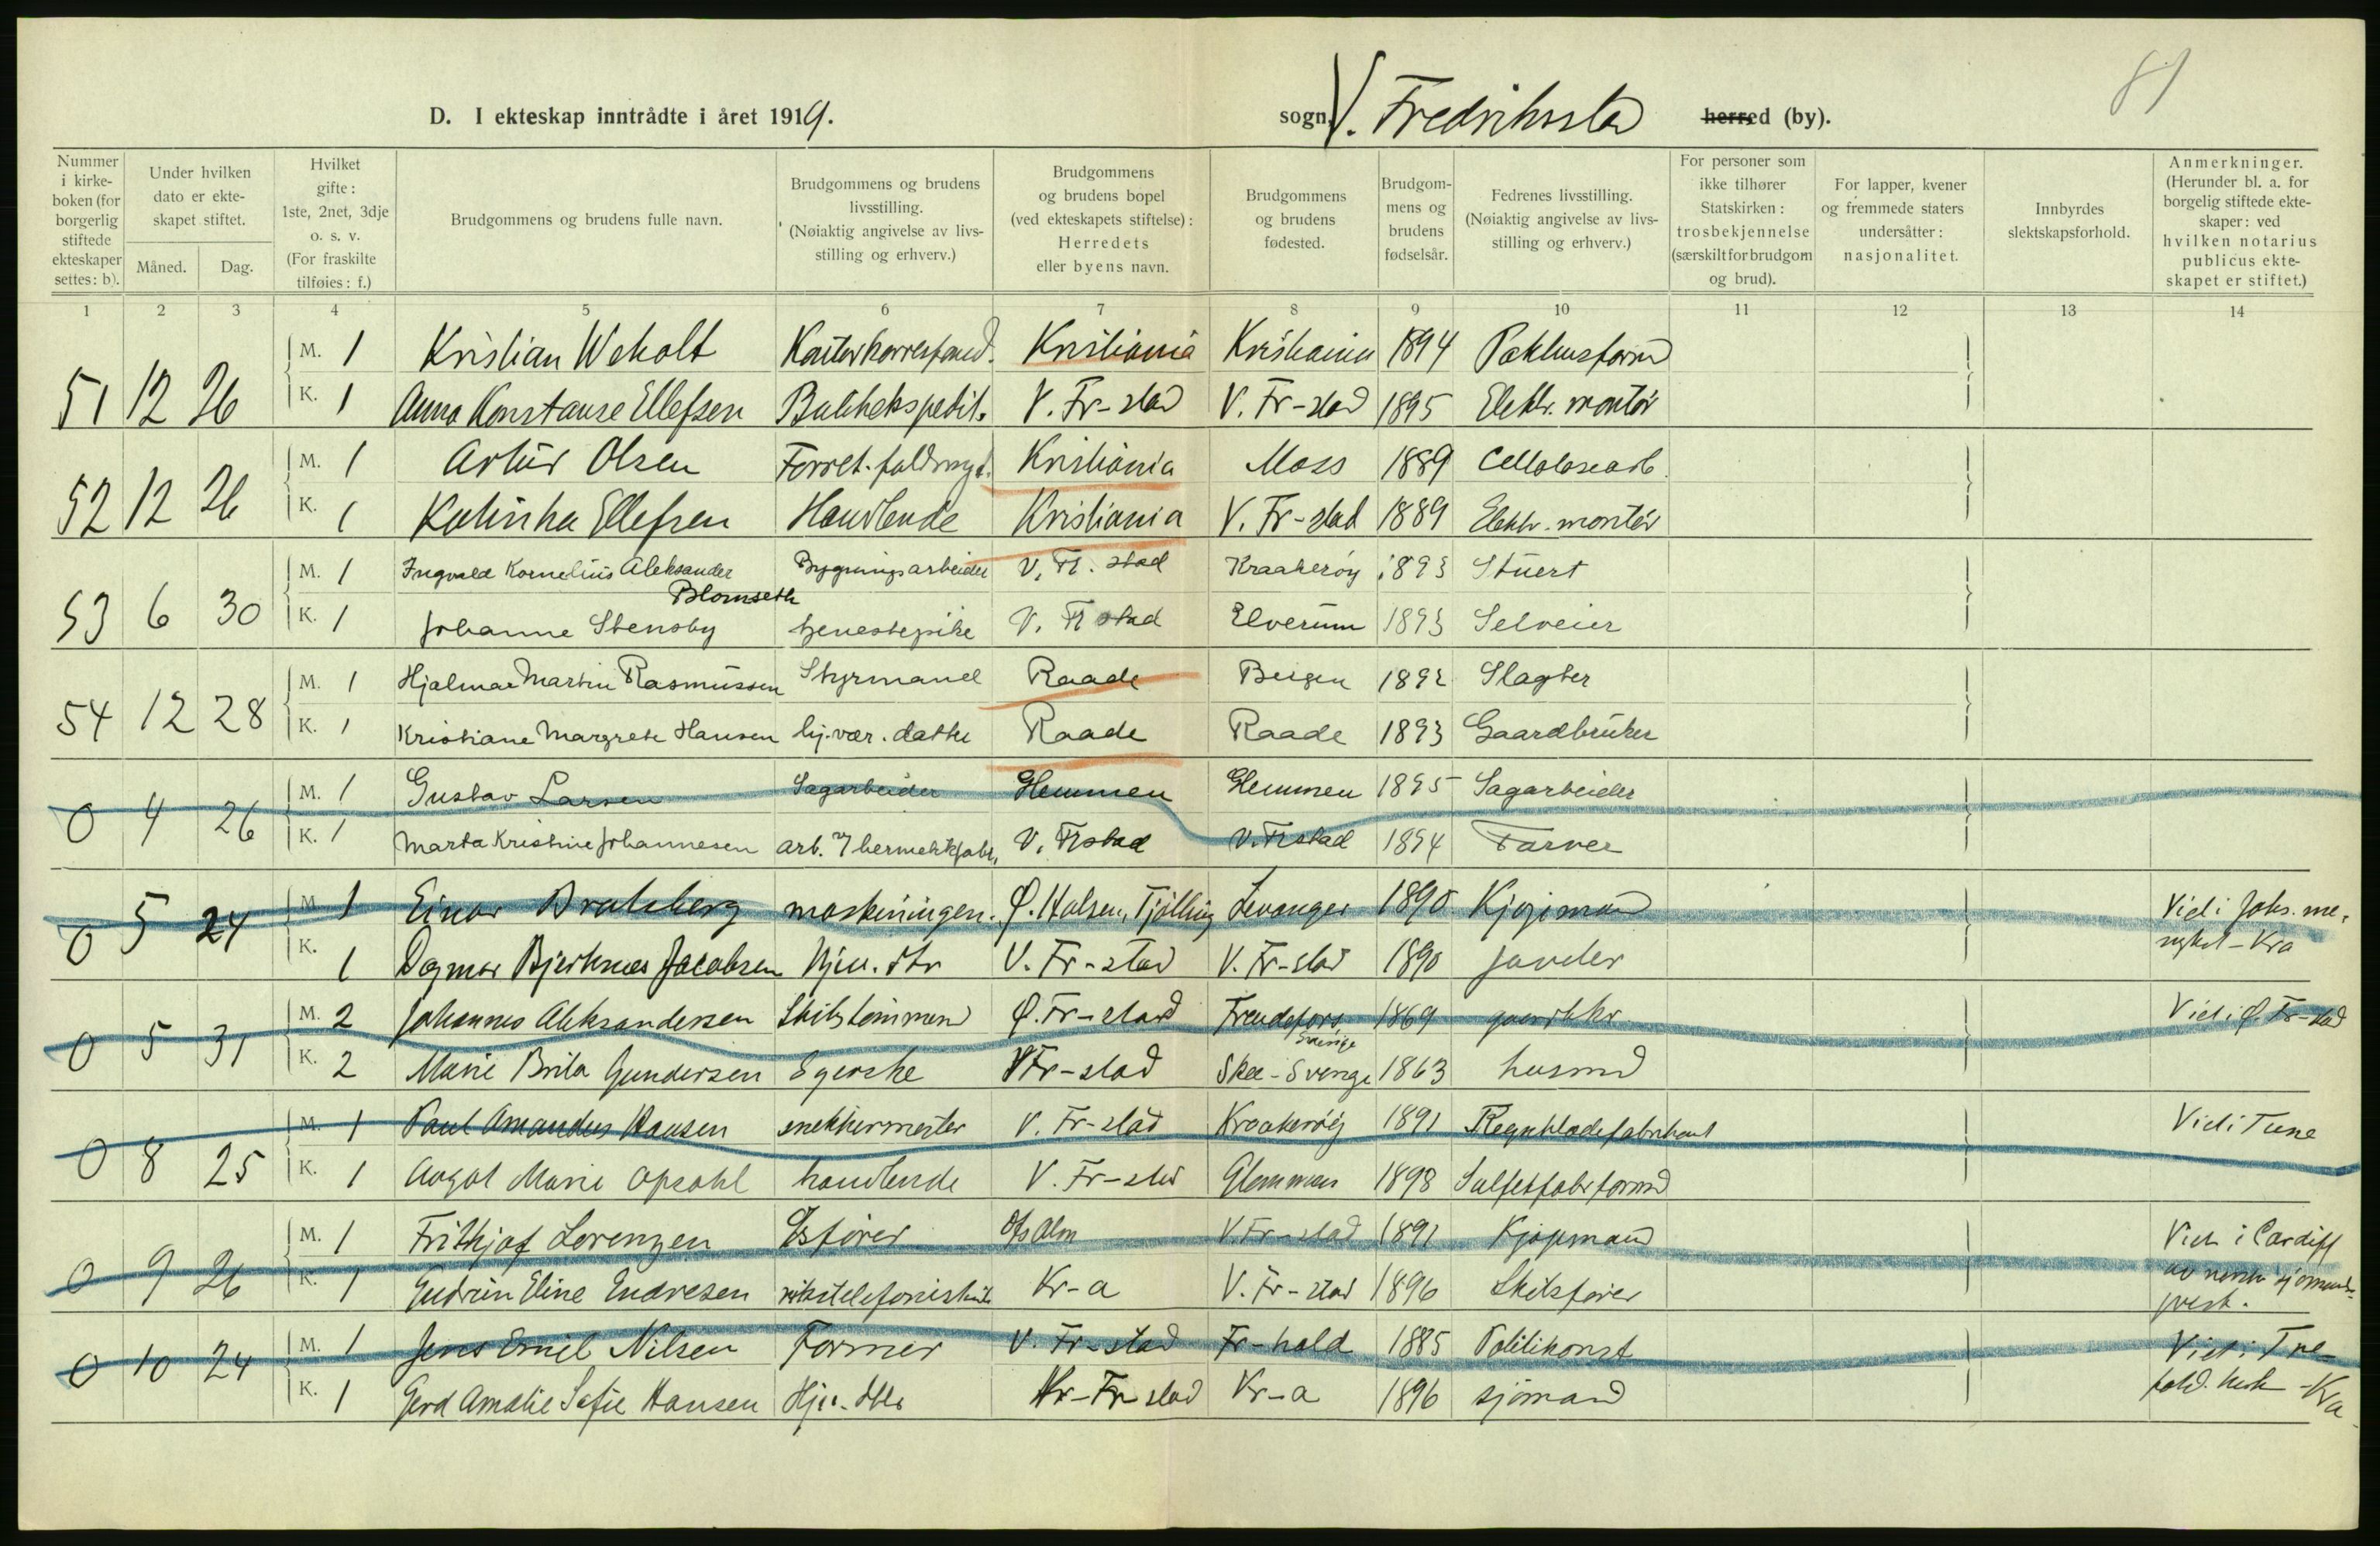 81
D. I ekteskap inntrådte i året 1919.
sogn, V. Fredrikstad herred (by).
Nummer i kirkeboken (for borgerlig stiftede ekteskaper settes: b).
Under hvilken dato er ekteskapet stiftet.
Måned. Dag.
Hvilket gifte: 1ste, 2net, 3dje o. s. v. (For fraskilte tilføies: f.)
Brudgommens og brudens fulle navn.
Brudgommens og brudens livsstilling. (Nøiaktig angivelse av livsstilling og erhverv.)
Brudgommens og brudens bopel (ved ekteskapets stiftelse): Herredets eller byens navn.
Brudgommens og brudens fødested.
Brudgommens og brudens fødselsår.
Fedrenes livsstilling. (Nøiaktig angivelse av livsstilling og erhverv.)
For personer som ikke tilhører Statskirken: trosbekjennelse (særskilt for brudgom og brud).
For lapper, kvener og fremmede staters undersåtter: nasjonalitet.
Innbyrdes slektskapsforhold.
Anmerkninger. (Herunder bl. a. for borgelig stiftede ekteskaper: ved hvilken notarius publicus ekteskapet er stiftet.)
1 2 3 4 5 6 7 8 9 10 11 12 13 14
M. 1 Kristian Weholt Kontorkorrespond. Kristiania Kristiania 1894 Pakhusform
51 12 26 K. 1 Anna Konstanse Ellefsen Butikekspedit. V. Fr-stad V. Fr-stad 1895 Elektr. montör
M. 1 Artur Olsen Forret. fuldmegt. Kristiania Moss 1889 Cellulosearb.
52 12 26 K. 1 Katinka Ellefsen Handlende Kristiania V. Fr-stad 1889 Elektr. montör
M. 1 Ingvald Kornelius Aleksander Blomseth Bygningsarbeider V. Fr. stad Kraakeröy 1893 Stuert
53 6 30 K. 1 Johanne Stensby tjenestepike V. Fr stad Elverum 1893 Selveier
M. 1 Hjalmar Martin Rasmussen Styrmand Raade Bergen 1892 Slagter
54 12 28 K. 1 Kristiane Margrete Hansen hj. vær. datter Raade Raade 1893 Gaardbruker
M. 1 Gustav Larsen Sagarbeider Glemmen Glemmen 1895 Sagarbeider
0 4 26 K. 1 Marta Kristine Johannesen arb. i hermetikfabr. V. Frstad V. Frstad 1894 Farver
M. 1 Einar Bratsberg maskiningen. Ø. Halsen, Tjölling Levanger 1890 Kjöpmand Viet i Joh. me-
0 5 24 K. 1 Dagmar Bjerknes Jacobsen Hjem. dtr V. Fr-stad V. Fr-stad 1890 nighet - Kra
M. 2 Johannes Aleksandersen Skibstömmerm Ø. Fr-stad Frendefors Sverige 1869 gaardbkr Viet i Ø. Fr-stad
0 5 31 K. 2 Marie Brita Gundersen Egerske V Fr-stad Skee - Sverige 1863 husmd
M. 1 Paul Amandus Hansen snekkermester V. Fr-stad Kraakeröy 1891 Viet i Tune
0 8 25 K. 1 Aagot Marie Opsahl handlende V. Fr-stad Glemmen 1898 Sulfitfabr formd
M. 1 Frithjof Lorenzen V. Fr-stad 1891 Kjöpmand Viet i Cardiff
0 9 26 K. 1 Gudrun Eline Endresen rikstelefonistinde Kr-a V. Fr-stad 1896 Skibsförer av norsk sjömands-
prest.
M. 1 Jens Emil Nilsen Former V. Fr-stad Fr-hald 1885 Politikonst Viet i Tre-
0 10 24 K. 1 Gerd Amalie Sofie Hansen Hjv. dtr Fr stad Kr-a 1896 sjömand fold. kirk - Kra